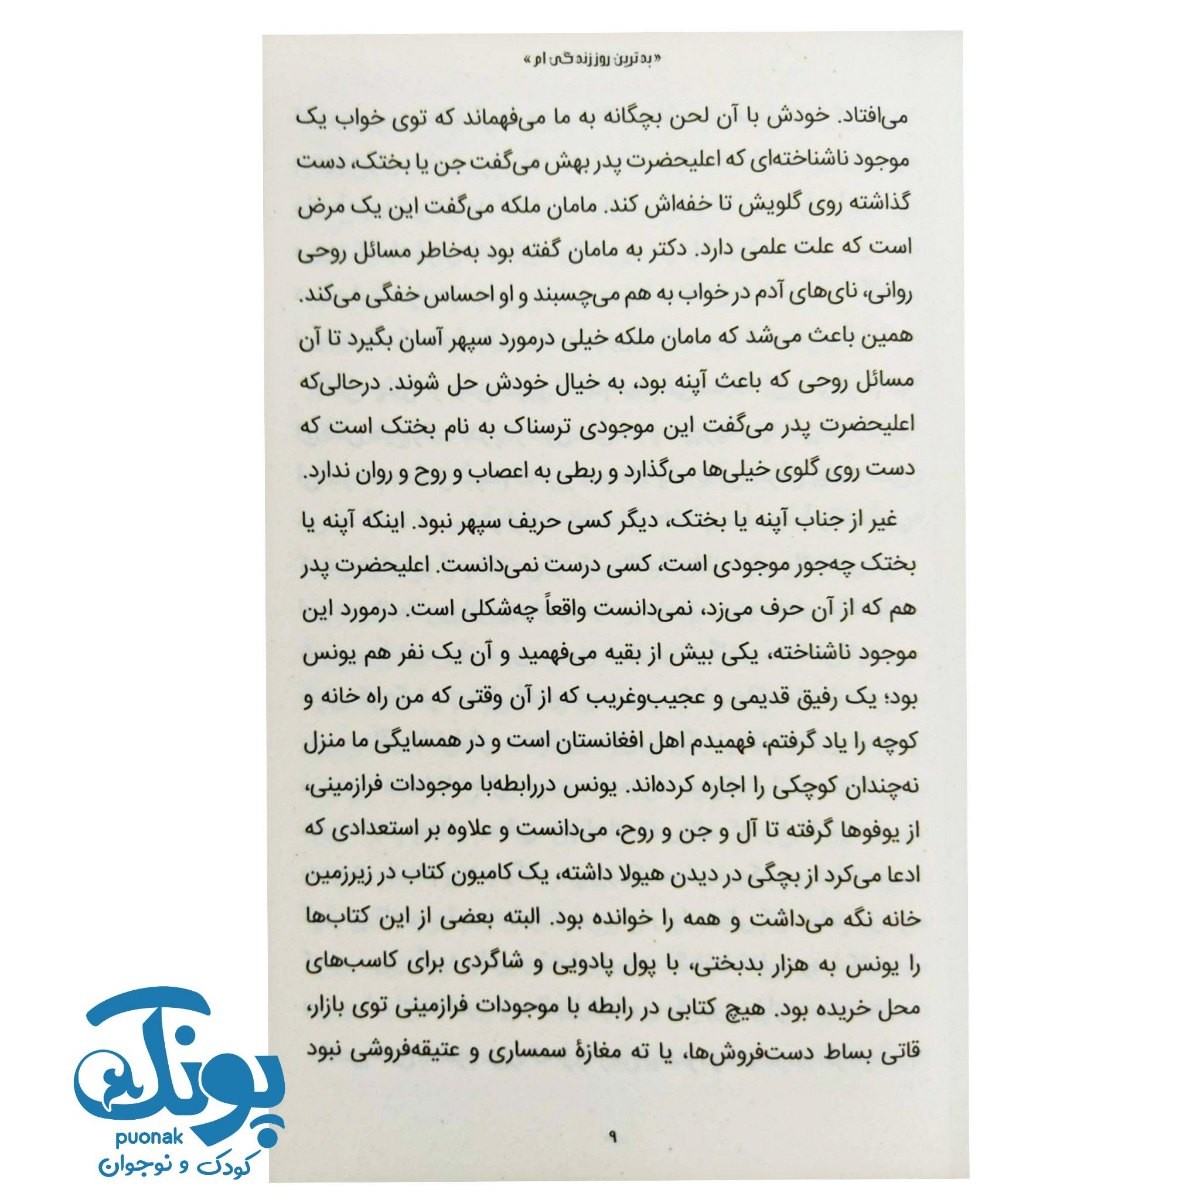 «بدترین روز زندگی ام»
می‌افتاد. خودش با آن لحن بچگانه به ما می‌فهماند که توی خواب یک
موجود ناشناخته‌ای که اعلیحضرت پدر بهش می‌گفت جن یا بختک، دست
گذاشته روی گلویش تا خفه‌اش کند. مامان ملکه می‌گفت این یک مرض
است که علت علمی دارد. دکتر به مامان گفته بود به‌خاطر مسائل روحی
روانی، نای‌های آدم در خواب به هم می‌چسبند و او احساس خفگی می‌کند.
همین باعث می‌شد که مامان ملکه خیلی درمورد سپهر آسان بگیرد تا آن
مسائل روحی که باعث آپنه بود، به خیال خودش حل شوند. درحالی‌که
اعلیحضرت پدر می‌گفت این موجودی ترسناک به نام بختک است که
دست روی گلوی خیلی‌ها می‌گذارد و ربطی به اعصاب و روح و روان ندارد.
غیر از جناب آپنه یا بختک، دیگر کسی حریف سپهر نبود. اینکه آپنه یا
بختک چه‌جور موجودی است، کسی درست نمی‌دانست. اعلیحضرت پدر
هم که از آن حرف می‌زد، نمی‌دانست واقعاً چه‌شکلی است. درمورد این
موجود ناشناخته، یکی بیش از بقیه می‌فهمید و آن یک نفر هم یونس
بود؛ یک رفیق قدیمی و عجیب‌وغریب که از آن وقتی که من راه خانه و
کوچه را یاد گرفتم، فهمیدم اهل افغانستان است و در همسایگی ما منزل
نه‌چندان کوچکی را اجاره کرده‌اند. یونس دررابطه‌با موجودات فرازمینی،
از یوفوها گرفته تا آل و جن و روح، می‌دانست و علاوه بر استعدادی که
ادعا می‌کرد از بچگی در دیدن هیولا داشته، یک کامیون کتاب در زیرزمین
خانه نگه می‌داشت و همه را خوانده بود. البته بعضی از این کتاب‌ها
را یونس به هزار بدبختی، با پول پادویی و شاگردی برای کاسب‌های
محل خریده بود. هیچ کتابی در رابطه با موجودات فرازمینی توی بازار،
قاتی بساط دست‌فروش‌ها، یا ته مغازهٔ سمساری و عتیقه‌فروشی نبود
۹
پونک
puonak
کودک و نوجوان